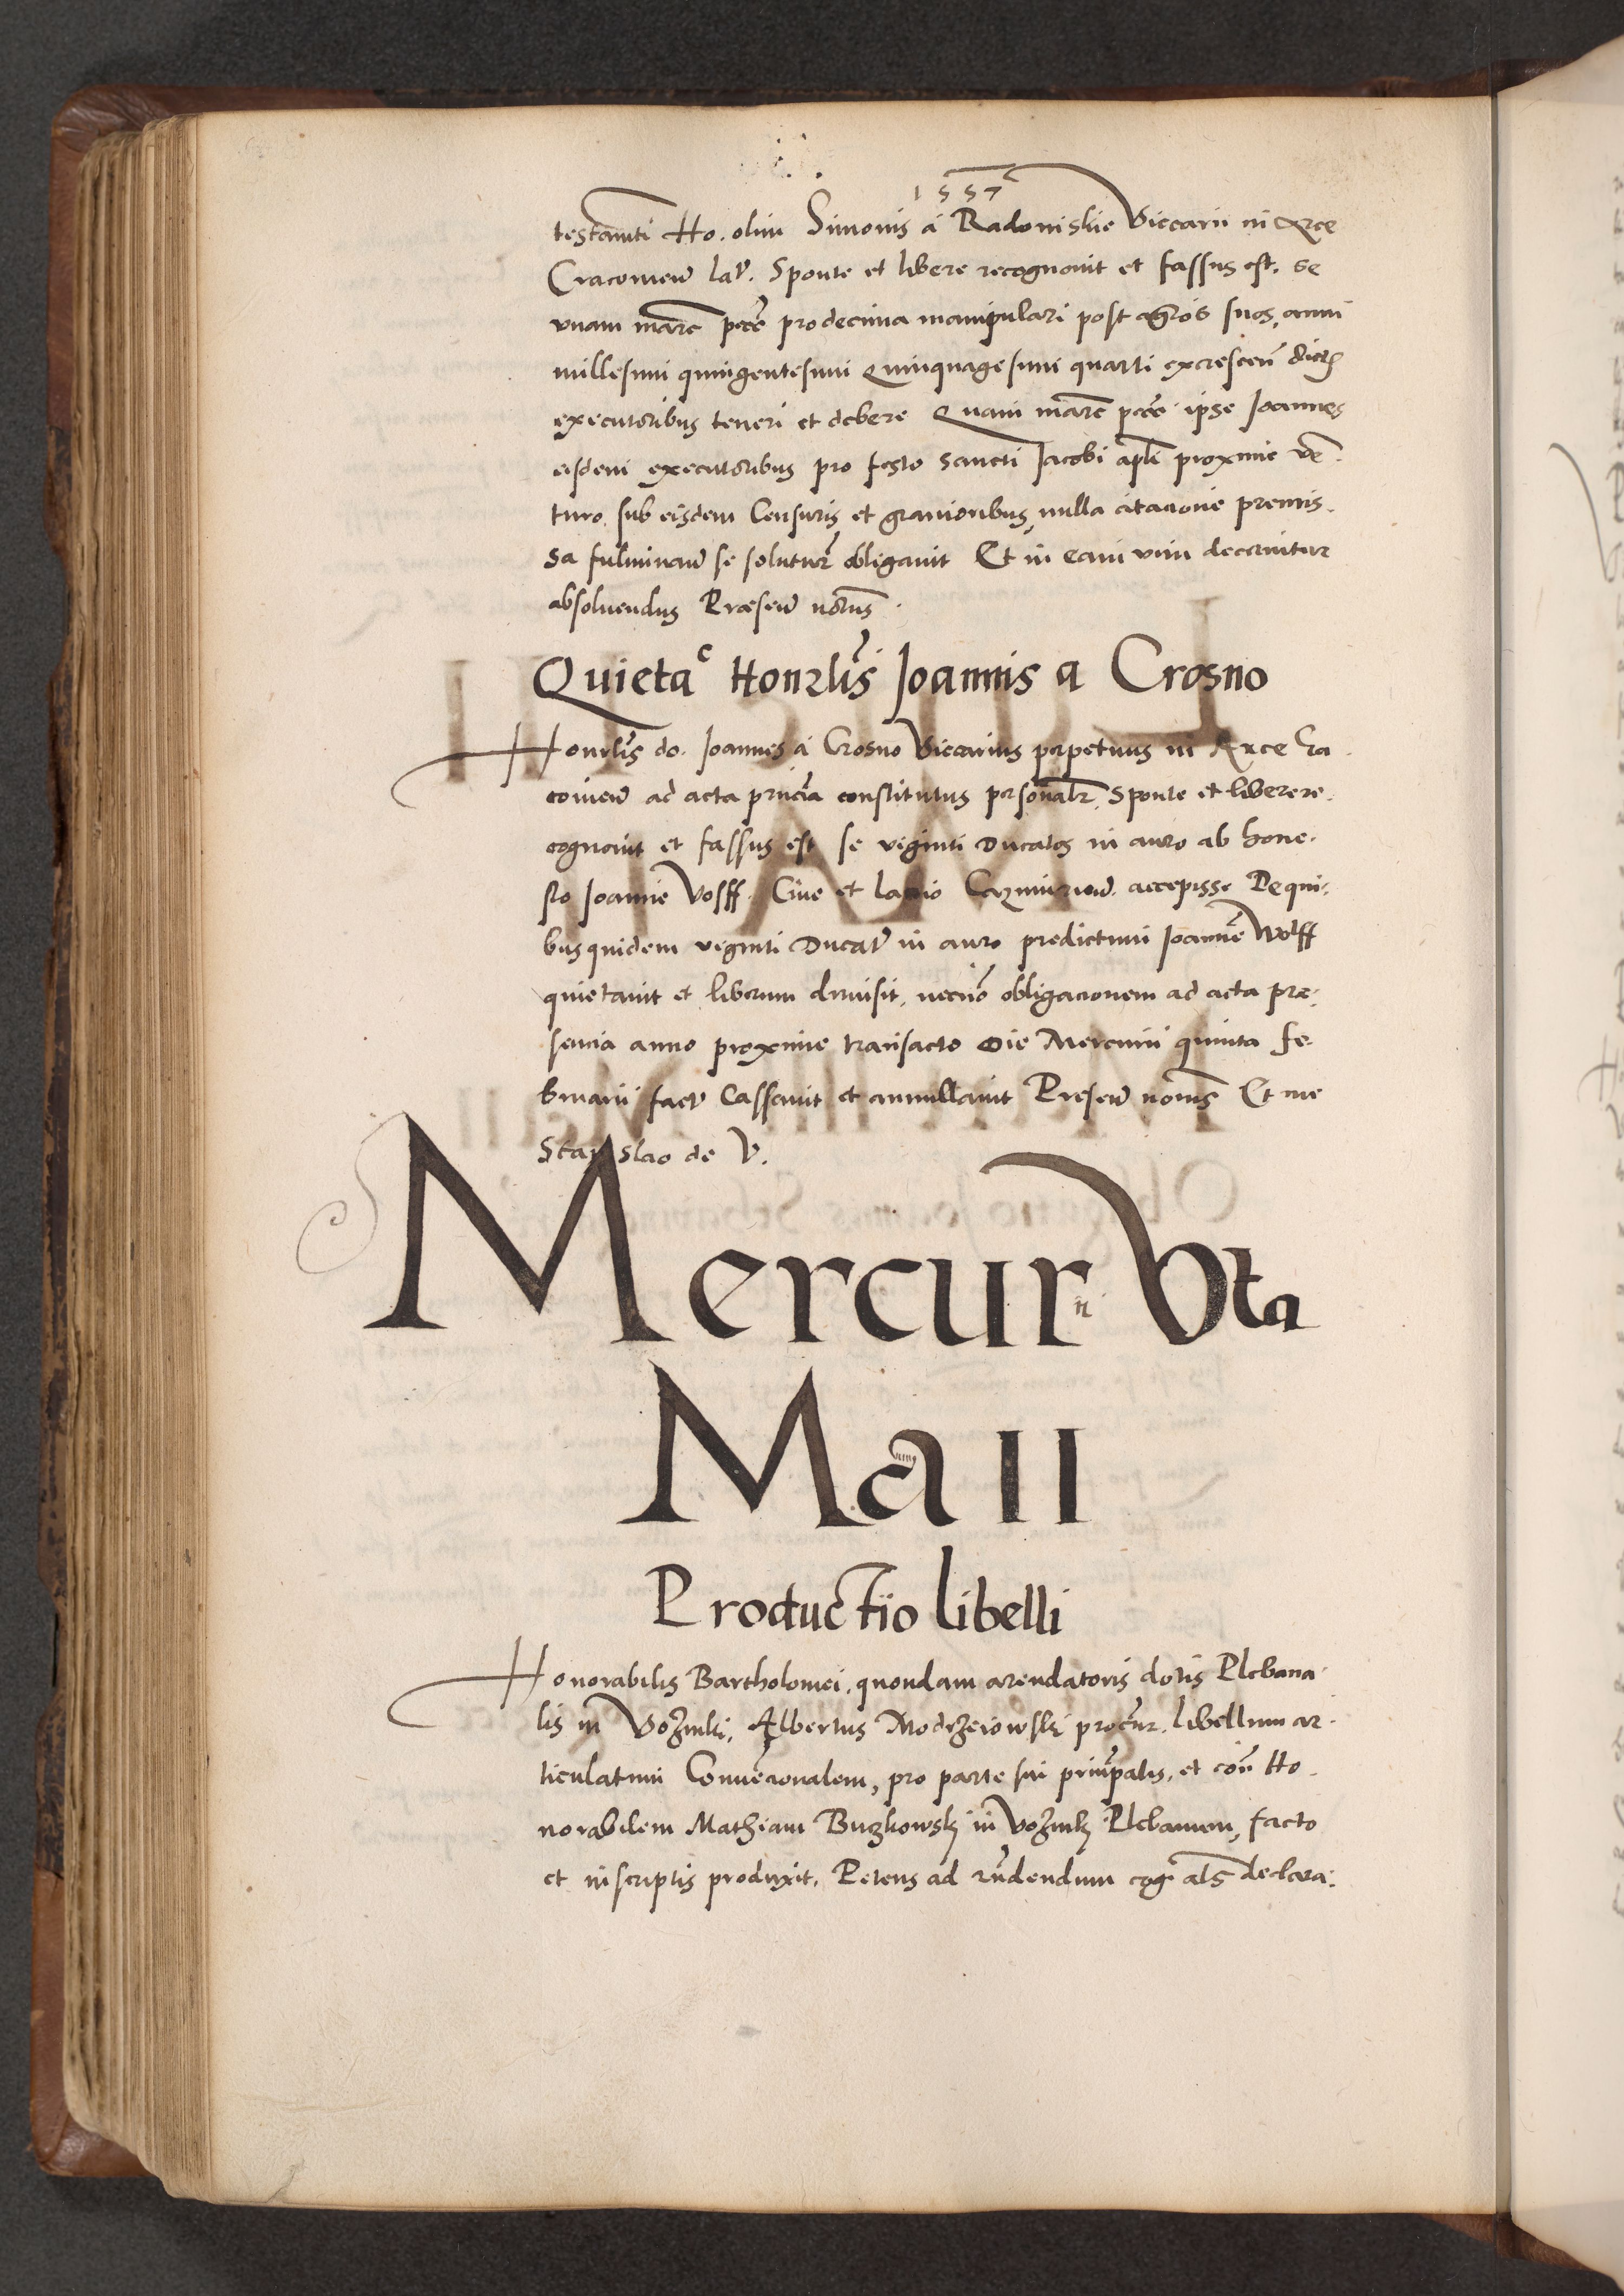 1557
testam̄ti Ho. olim Simonis á Radoniskie Viccarii in Arce
Cracovien̄ lat̄. Sponte et libere recognovit et fassus est. se
vnam marc̄ pec̄c̄ pro decima manipulari post agros suos, anni
millesimi quingentesimi Quinquagesimi quarti excrescen̄ dictis
executoribus teneri et debere Quam marc̄ pec̄c̄ ipse Joannes
eisdem executoribus pro festo Sancti Jacobi apl̄i proxime ven̄.
turo, sub eisdem Censuris et gravioribus, nulla citacione premis.
sa fulminan̄ se soluturū obligavit Et in eam vim decernitur
absoluendus Præsen̄ notus̄.
Quietac̄ Honrlis̄ Joannis a Crosno
Honrlis̄ do. Joannes á Crosno Viccarius perpetuus in Arce Cra.
covien̄ ad acta prn̄cia constitutus personalr̄. Sponte et libere re.
cognovit et fassus est se viginti Ducatos in auro ab hone.
sto Joanne Volff. Ciue et lanio Cazmirien̄. accepisse De qui.
bus quidem viginti Ducat̄ in auro predictum Joannē Wolff
quietavit et liberum dimisit, necnō obligacionem ad acta præ.
sencia anno proxime transacto Die Mercurii quinta Fe.
bruarii fact̄ Cassavit et annullavit Presen̄ notus̄ Et me
Stanislao de V.
Mercurii Vta
Maii
Productio libelli
Honorabilis Bartholomei. quondam arendatoris dotis Plebana.
lis in Voznik̨, Albertus Modrzeiowski procur̄. libellum ar.
ticulatum Conuencionalem, pro parte sui princ̄palis, et con̄ Ho.
norabilem Mathiam Buzkowsk̨ in Voznik̨ Plebanum, facto
et in scriptis produxit, Petens ad rn̄dendum cog̓ al̄s declara.